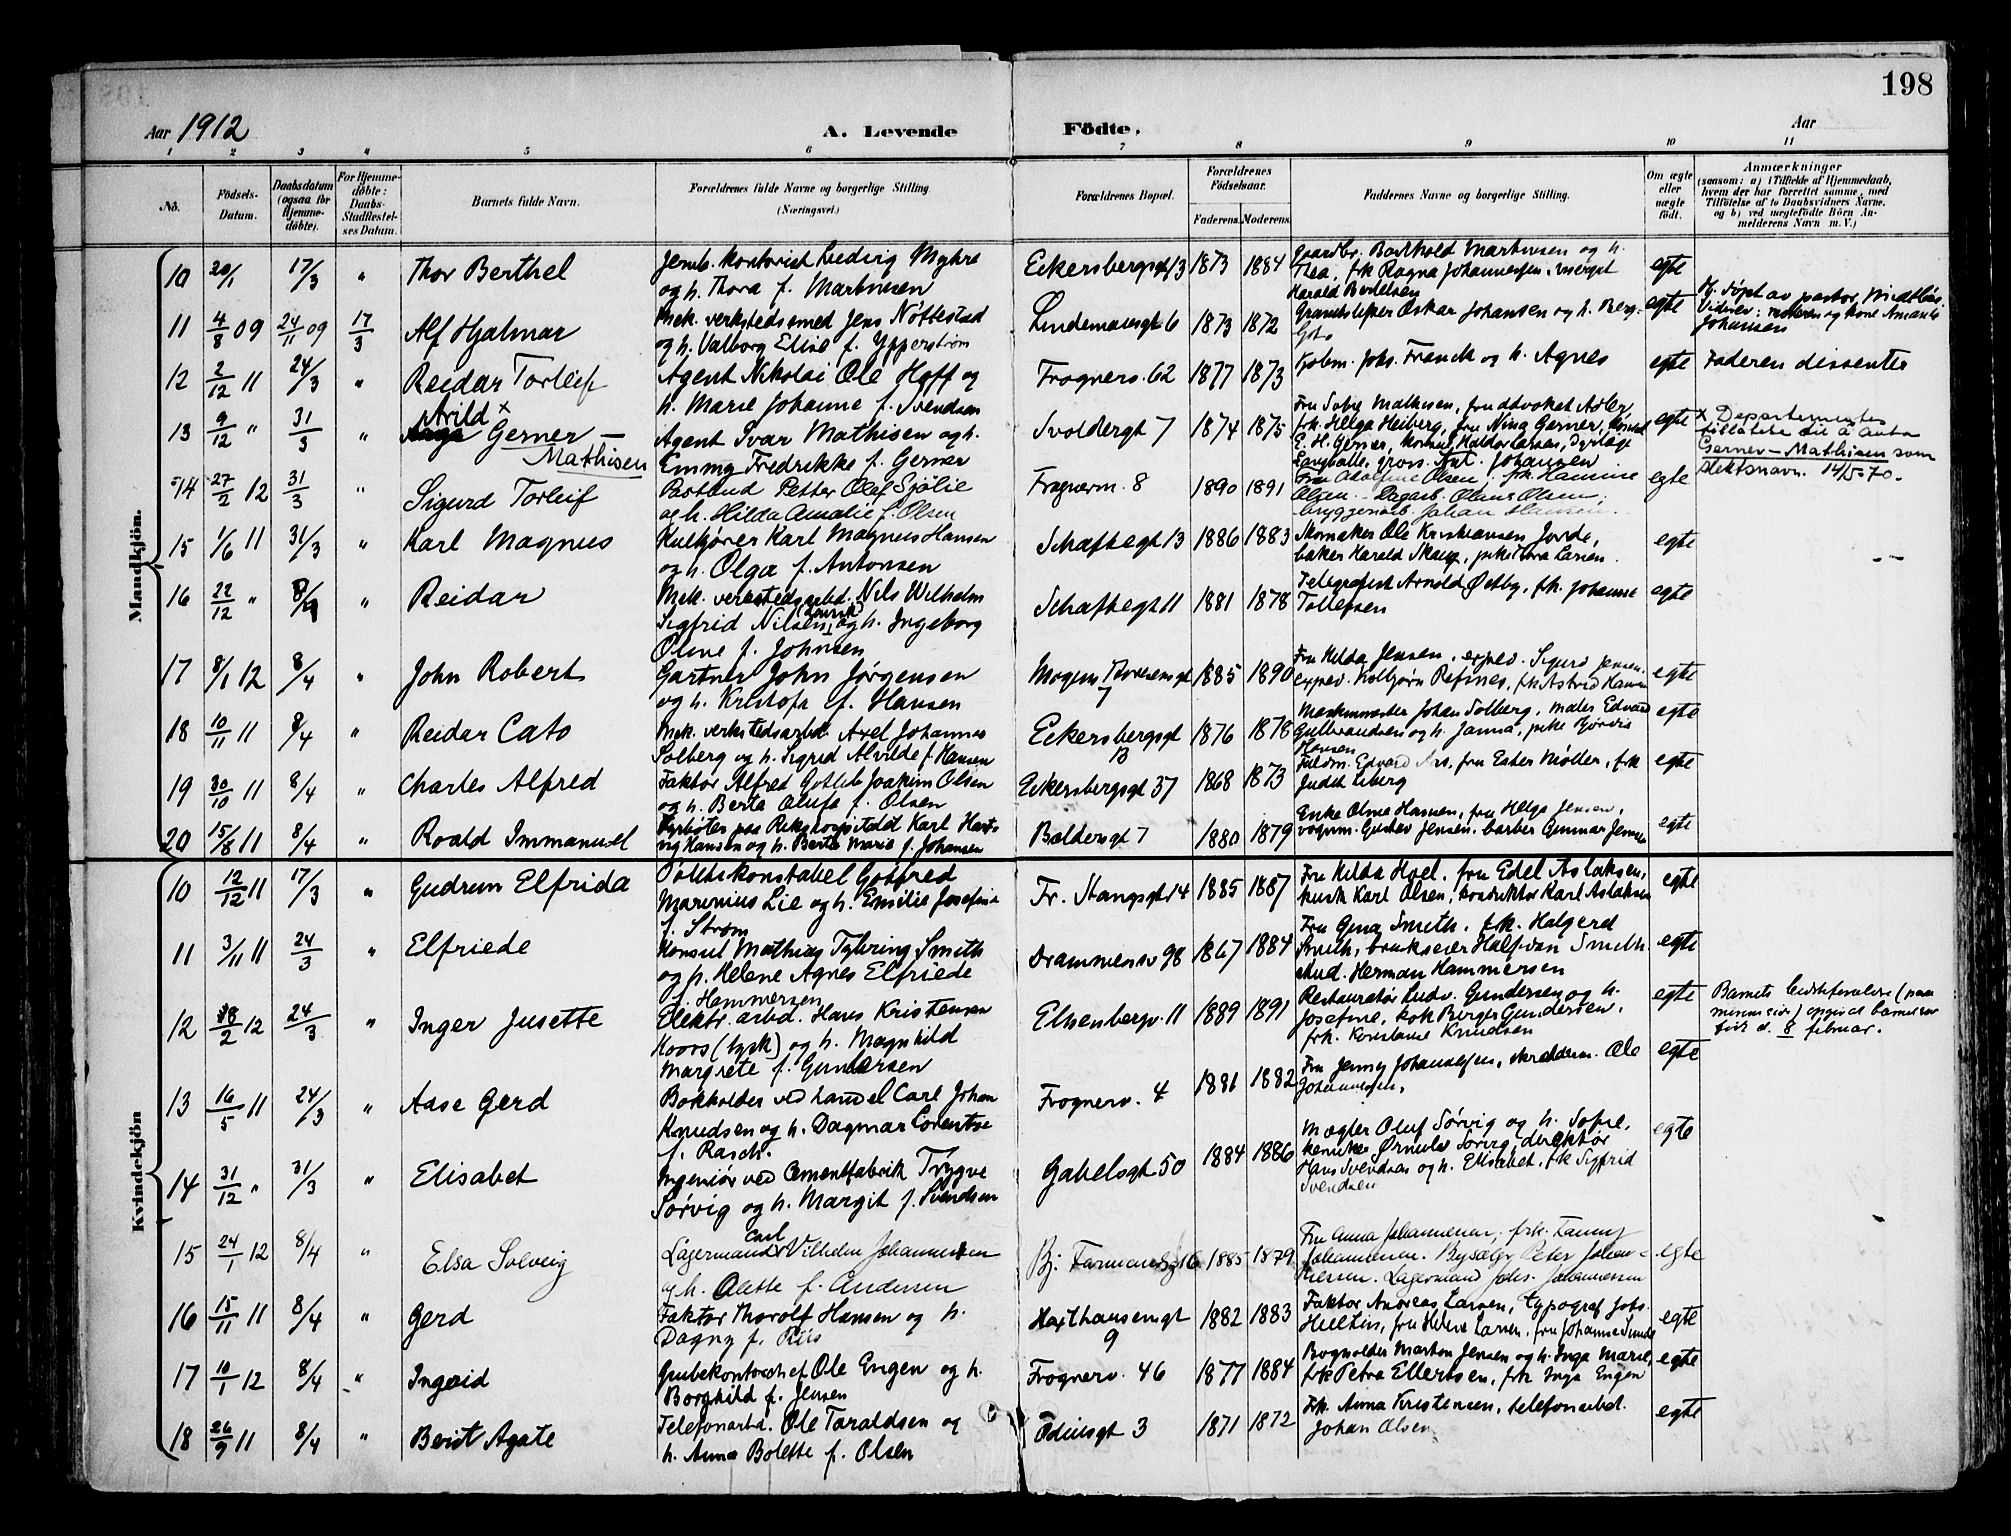 198
Aar 1912
A. Levende Födte.
Aar
1 2 3 4 5 6 7 8 9 10 11
No.
Födsels-Datum.
Daabsdatum (ogsaa for Hjemme-döbte).
For Hjemme-döbte: Daabs-Stadfæstel-ses Datum.
Barnets fulde Navn.
Forældrenes fulde Navne og borgerlige Stilling (Næringsvei.)
Forældrenes Bopæl.
Forældrenes Födselsaar.
Faderens. Moderens.
Faddernes Navne og borgerlige Stilling.
Om ægte eller uægte födt.
Anmærkninger
(saasom: a) i Tilfælde af Hjemmedaab, hvem der har forrettet samme, med Tilföielse af to Daabsvidners Navne, og b) ved uægtefödte Börn Anmelderens Navn m. V.)
Mandkjön.
10 20/1 17/3 " Thor Berthel
Jernb. kontorist Ludvig Myhre og h. Thora f. Martinsen
Eckersbergsgt 13 1873 1884
Gaardbr. Barthold Martinsen og h. Thea, frk Ragna Johannessen, Harald Bertelsen
egte
11 4/8 09 24/11 09 17/3 Alf Hjalmar
Mek. verkstedssmed Jens Nøttestad og h. Valborg Elise f. Ypperstrøm
Lindemansgt 6 1873 1872
Oskar Johansen og h.
egte
Hj. døpt av pastor
og kone Johansen
12 2/12 11 24/3 " Reidar Torleif
Agent Nikolai Ole Hoff og h. Marie Johanne f. Svendsen
Frognerv. 62 1877 1873
Kjøbm. Johs. Franck og h. Agnes
egte
Faderen dissenter
13 9/12 " 31/3 " Arild x Gerner - Mathisen
Agent Ivar Mathisen og h. Emmy Fredrikke f. Gerner
Svoldergt 7 1874 1875
Fru Sofie Mathisen, fru advokat Adler, frk. Helga Heiberg, fru Nina Gerner, E. H. Gerner, Haldor Larsen, gros. Johansen
egte
x Departementets tillatelse til å anta Gerner-Mathisen som slektsnavn. 14/5-70.
14 27/2 12 31/3 " Sigurd Torleif
Petter Olaf Sjølie og h. Hilda Amalie f. Olsen
Frognerm. 8 1890 1891
Fru Adolfine Olsen, frk. Hannine Olsen, Dagarb. Olaus Olsen, bryggeriarb. Johan Hansen.
egte
15 1/6 11 31/3 " Karl Magnus
Kulkjører Karl Magnus Hansen og h. Olga f. Antonsen
Schaftegt 13 1886 1883
Skomaker Ole Kristiansen Jorde, baker Harald Skaug, pike Thora Larsen.
egte
16 22/12 " 8/4 " Reidar
Mek. verkstedsarbd. Nils Wilhelm Sigfrid Nilsen (svensk) og h. Ingeborg Oline f. Johnsen
Schaftegt 11 1881 1878
Telegrafist Arnold Østby, frk. Johanne Tollefsen
egte
17 8/1 12 8/4 " John Robert
Gartner John Jørgensen og h. Kristofa f. Hansen
Mogens Thorsensgt 7 1885 1890
Fru Hilda Jensen, exped. Sigurd Jensen, exped. Kolbjørn Refsnes, frk. Astrid Hansen
egte
18 10/11 11 8/4 " Reidar Cato
Mek. verkstedsarbd. Axel Johannes Solberg og h. Sigrid Alvilde f. Hansen
Eckersbergsgt 13 1876 1878
Maskinmester Johan Solberg, maler Edvard Gulbrandsen og h. Janna, pike Hjørdis Hansen
egte
19 30/10 11 8/4 " Charles Alfred
Faktor Alfred Gotlieb Joakim Olsen og h. Berta Olufa f. Olsen
Eckersbergsgt 37 1868 1873
Fuldm. Edvard Aas, fru Ester Møller, frk Judith Leberg
egte
20 15/8 11 8/4 " Roald Immanuel
Fyrbøter paa Rikshospitalet Karl Hartvig Hansen og h. Berta Marie f. Johansen
Baldersgt 7 1880 1879
Enke Oline Hansen, fru Helga Jensen, vognm. Gustav Jensen, barber Gunnar Jensen
egte
Kvindekjön
10 12/12 11 17/3 " Gudrun Elfrida
Politikonstabel Gotfred Marinius Lie og h. Emilie Josefine f. Strøm
Fr. Stangsgt 14 1885 1887
Fru Hilda Hoel, fru Edel Aslaksen, kusk Karl Olsen, konduktør Karl Aslaksen
egte
11 3/11 11 24/3 " Elfriede
Konsul Mathias Tybring Smith og h. Helene Agnes Elfriede f. Hammersen
Drammensv 98 1867 1884
Fru Gina Smith, frk. Halgerd Smith, brukseier Halfdan Smith, stud. Herman Hammersen
egte
12 18/2 12 24/3 " Inger Jusette
Elektr. arbd. Hans Kristensen Koors (tysk) og h. Magnhild Margrete f. Gundersen
Elisenbergv. 11 1889 1891
Restauratør Ludv. Gundersen og h. Josefine, kok Birger Gundersen, frk. Konstanse Knudsen
egte
Barnets bedsteforældre opgir at barnet er født d. 8 februar.
13 16/5 11 24/3 " Aase Gerd
Bokholder ved handel Carl Johan Knudsen og h. Dagmar Lorentse f. Rasch.
Frognerv. 4 1881 1882
Fru Jenny Johannessen, skrædderm. Ole Johannessen.
egte
14 31/12 " 31/3 " Elisabet
Ingeniør ved Cementfabrik Trygve Sørvig og h. Margit f. Svendsen
Gabelsgt 50 1884 1886
Mægler Oluf Sørvig og h. Sofie, kemiker Ørnulv Sørvig, direktør Hans Svendsen og h. Elisabet, frk Sigfrid Svendsen
egte
15 24/1 12 8/4 " Elsa Solveig
Lagermand Carl Vilhelm Johannessen og h. Alette f. Andersen
Bj. Farmandsg 16 1885 1879
Fru Anna Johannessen, frk. Fanny Johannessen. Bysælger Peter Lagermand Johs. Johannessen
egte
16 15/11 11 8/4 " Gerd
Faktor Thorolf Hansen og h. Dagny f. Riis
Haxthausensgt 9 1882 1883
Faktor Andreas Larsen, typograf Johs. Hultin, fru Helene Larsen, fru Johanne Lunde
egte
17 10/1 12 8/4 " Ingrid
Grubekontorchef Ole Engen og h. Borghild f. Jensen
Frognerv. 46 1877 1884
Bogholder Morten Jensen og h. Inga Marie, frk Petra Ellertsen, frk Inga Engen
egte
18 26/9 11 8/4 " Berit Agate
Telefonarbd. Ole Taraldsen og h. Anna Bolette f. Olsen
Odinsgt 3 1871 1872
Frk. Anna Kristensen, telefonarbd. Johan Olsen
egte